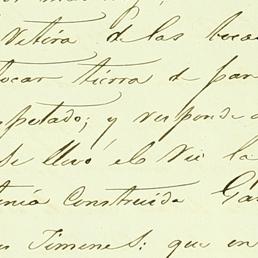 Retira de las
tocar tierra de par
spetado; y responde a
se llevó el Rio la
enia Construida Ga
Jimenes: que en